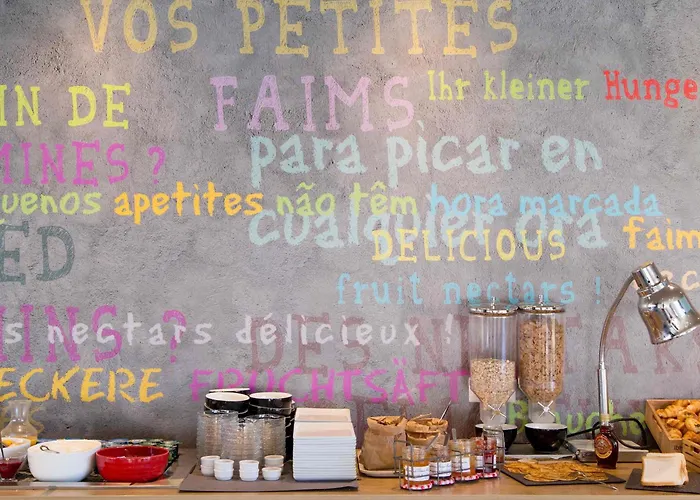 VOS PETITES
IN DE
FAIMS
Ihr kleiner Hunge
MINES ?
para picar en
uenos apetites não têm hora marcada
cualquier ora
ED
DELICIOUS
faim
fruit nectars !
MINS ?
s nectars délicieux !
DES NECTARS
ECKERE FRUCHTSÄFT